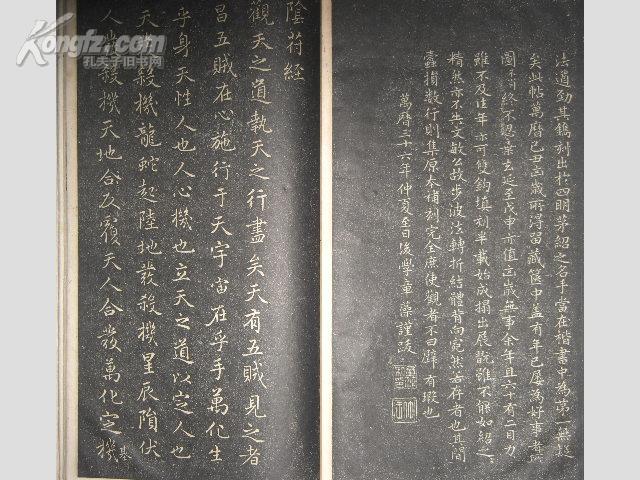 法遒劲其镌刻出於四明茅紹之名手當在楷書中為第一無疑
矣此帖萬曆己丑歲所得留藏篋中盖有年已屡為好事者
圖 終不忍棄去延至戊申亦值 歲無事余年且六十有二目力
雖不及往年亦可雙鈎填刻半載始成搨出展翫雖不能如紹之
精然亦不失文敏公故步波法轉折結體背向宛然若存者也其間
蠧損數行則集原本補刻完全庶使觀者不曰璧有瑕也
萬曆三十六年仲夏至日後學章藻謹跋
陰符經
觀天之道執天之行盡矣天有五賊見之者
昌五賊在心施行于天宇宙在乎手萬化生
乎身天性人也人心機也立天之道以定人也
天發殺機龍蛇起陸地發殺機星辰隕伏
人發殺機天地合反覆天人合發萬化定機
基
Kongfz.com
孔夫子旧书网